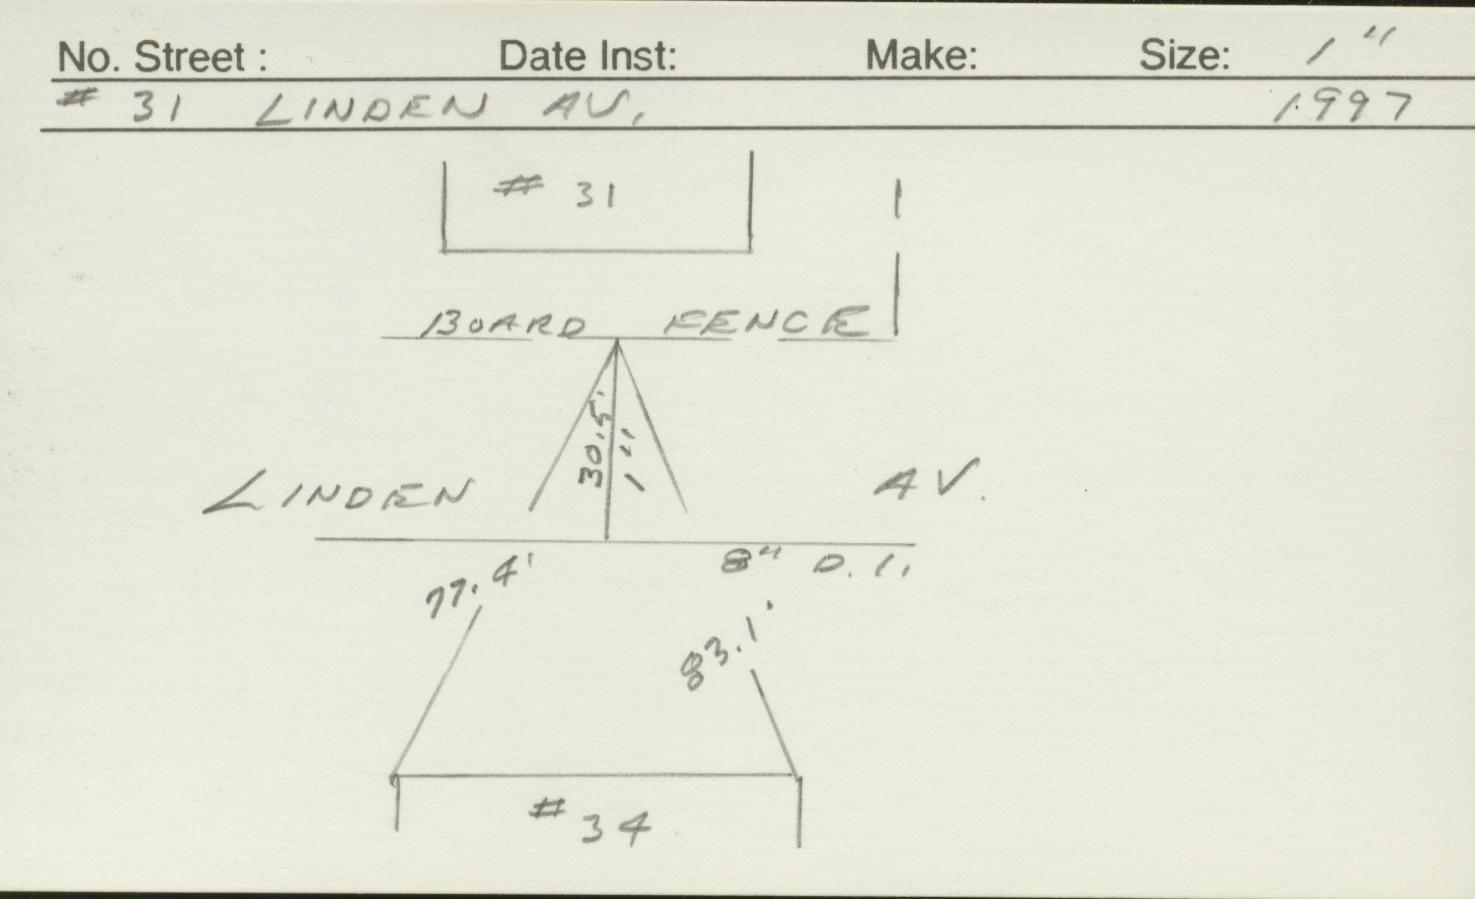 No. Street : Date Inst: Make: Size: 1"
# 31 LINDEN AV. 1997
# 31
BOARD FENCE
30.5'
1"
LINDEN AV.
77.4' 8" D.I.
83.1'
# 34